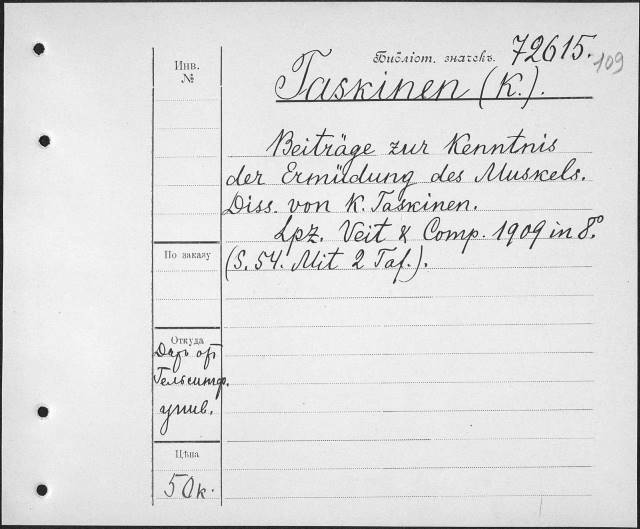 Инв.
№
Библіот. значекъ. 72615.
109
Taskinen (K.).
Beiträge zur Kenntnis
der Ermüdung des Muskels.
Diss. von K. Taskinen.
Lpz. Veit & Comp. 1909 in 8º.
(S. 54. Mit 2 Taf.).
По заказу
Откуда
Даръ от
Гельсингф.
унив.
Цѣна
50к.